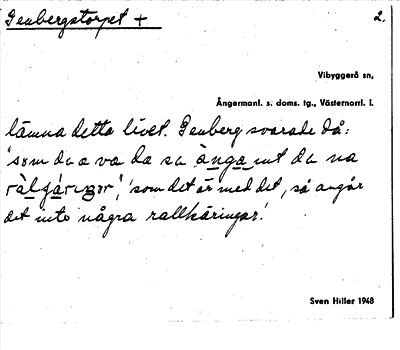 Genbergstorpet + 2.
Vibyggerå sn,
Ångermanl. s. doms. tg., Västernorrl. l.
lämna detta livet. Genberg svarade då:
'som da a va da sa ànga int da na
ràlgáriŋɷr', 'som det är med det, så angår
det inte några rallkäringar.'
Sven Hiller 1948